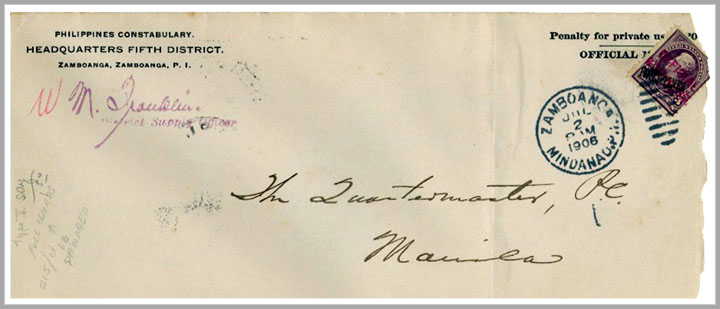 PHILIPPINES CONSTABULARY.
HEADQUARTERS FIFTH DISTRICT.
ZAMBOANGA, ZAMBOANGA, P. I.
Penalty for private
OFFICIAL
W. M. Franklin.
District Supply Officer
ZAMBOANGA
JUL
2
AM
1906
MINDANAO, P.I.
The Quartermaster, P.C.
Manila